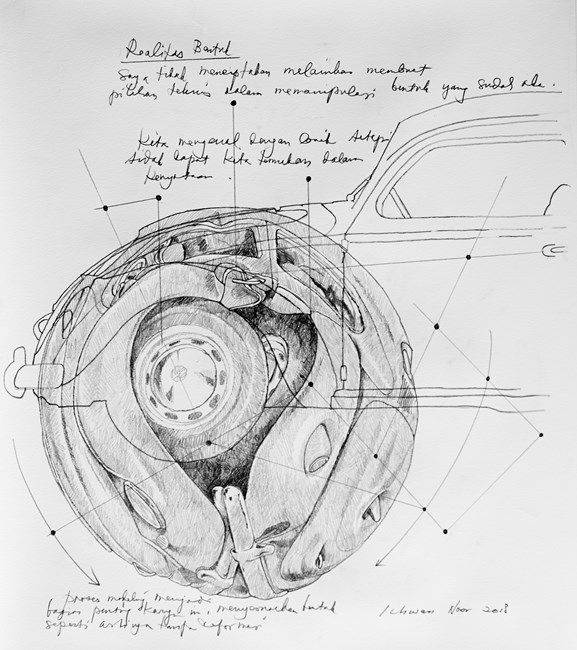 Realitas Bentuk
Saya tidak menciptakan melainkan membuat
pilihan teknis dalam memanipulasi bentuk yang sudah ada.
Kita mengenal dengan baik tetapi
tidak dapat kita temukan dalam
kenyataan.
proses menjadi
bagian penting karya ini, bentuk
seperti tanpa deformasi
Ichwan Noor 2018